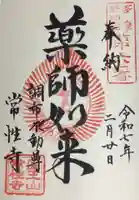 奉納
令和七年
二月廿日
薬師如来
調布不動尊
常性寺